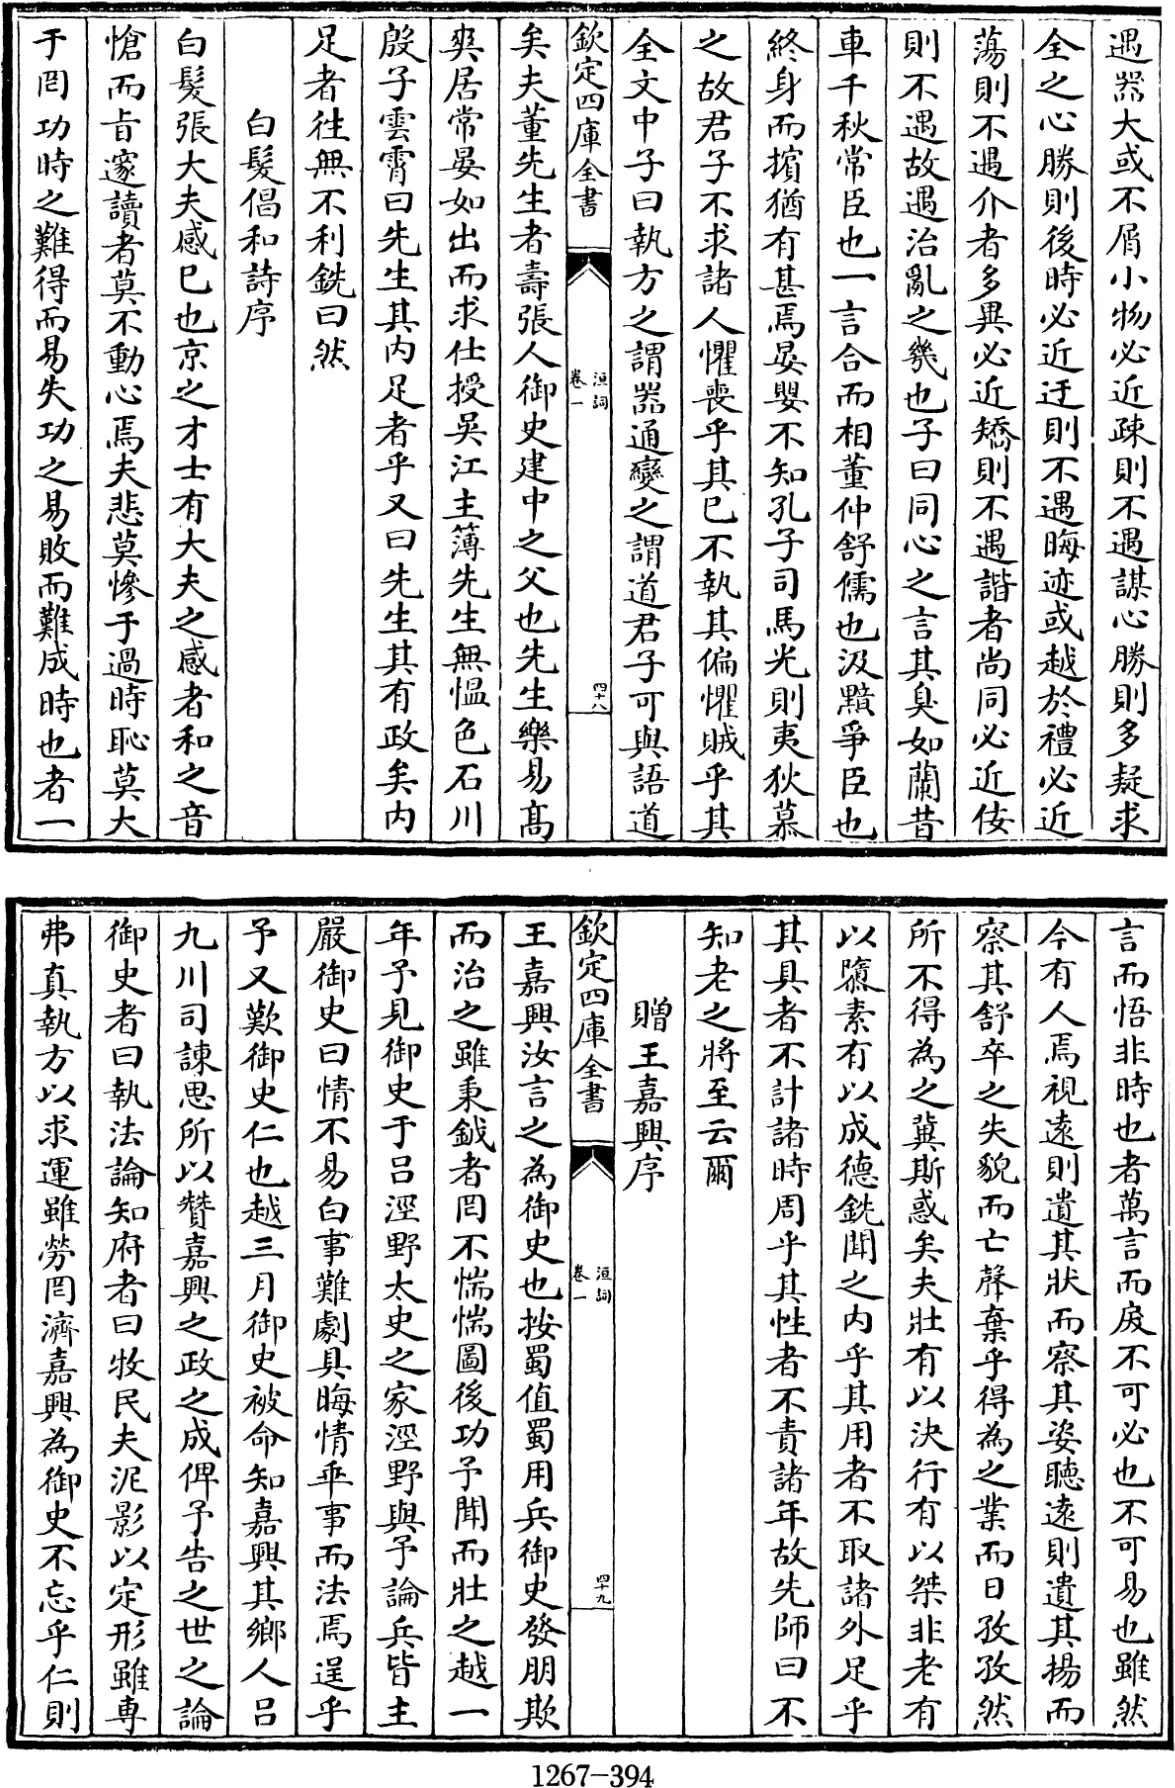 遇器大或不屑小物必近疎則不遇謀心勝則多疑求
全之心勝則後時必近迂則不遇晦迹或越於禮必近
蕩則不遇介者多異必近矯則不遇諧者尚同必近佞
則不遇故遇治亂之幾也子曰同心之言其臭如蘭昔
車千秋常臣也一言合而相董仲舒儒也汲黯爭臣也
終身而擯猶有甚焉晏嬰不知孔子司馬光則夷狄慕
之故君子不求諸人懼喪乎其已不執其偏懼賊乎其
全文中子曰執方之謂器通變之謂道君子可與語道
欽定四庫全書
洹詞
卷一
四十八
矣夫董先生者壽張人御史建中之父也先生樂易髙
爽居常晏如出而求仕授吳江主簿先生無愠色石川
殷子雲霄曰先生其内足者乎又曰先生其有政矣内
足者徃無不利銑曰然
白髮倡和詩序
白髮張大夫感已也京之才士有大夫之感者和之音
愴而㫖邃讀者莫不動心焉夫悲莫慘于過時恥莫大
于罔功時之難得而易失功之易敗而難成時也者一
言而悟非時也者萬言而戾不可必也不可易也雖然
今有人焉視遠則遺其狀而察其姿聽遠則遺其揚而
察其舒卒之失貌而亡聲棄乎得為之業而日孜孜然
所不得為之冀斯惑矣夫壯有以決行有以桀非老有
以隳素有以成德銑聞之内乎其用者不取諸外足乎
其具者不計諸時周乎其性者不責諸年故先師曰不
知老之將至云爾
贈王嘉興序
欽定四庫全書
洹詞
卷一
四十九
王嘉興汝言之為御史也按蜀值蜀用兵御史發朋欺
而治之雖秉鉞者罔不惴惴圖後功予聞而壯之越一
年予見御史于吕涇野太史之家涇野與予論兵皆主
嚴御史曰情不易白事難劇具晦情乖事而法焉逞乎
予又歎御史仁也越三月御史被命知嘉興其鄉人吕
九川司諫思所以贊嘉興之政之成俾予告之世之論
御史者曰執法論知府者曰牧民夫泥影以定形雖専
弗真執方以求運雖勞罔濟嘉興為御史不忘乎仁則
1267-394